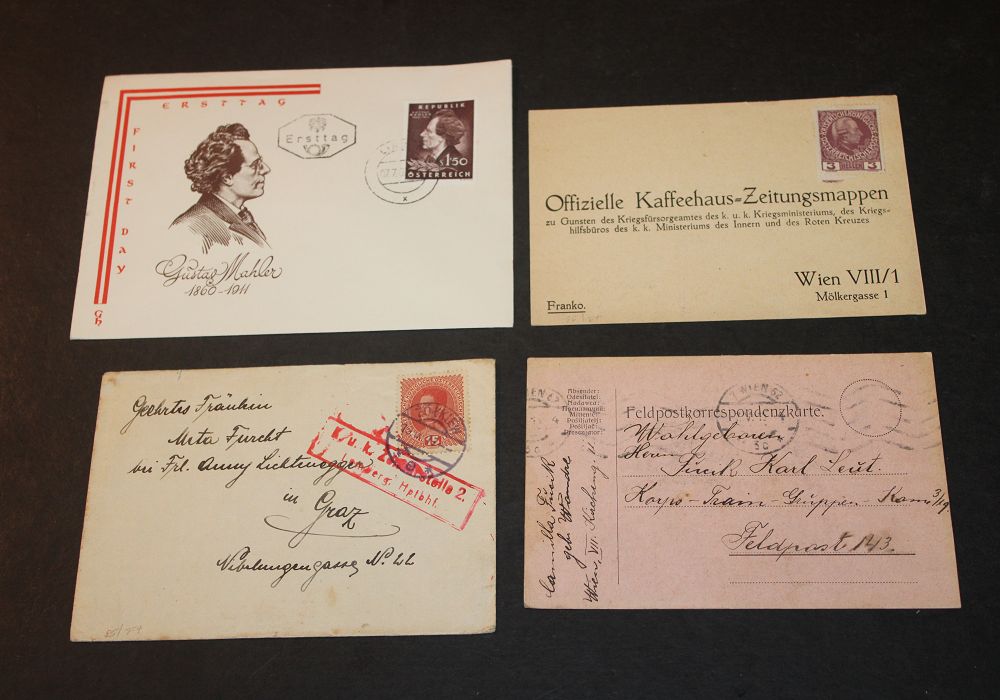 ERSTTAG
FIRST DAY
Ersttag
REPUBLIK
S1·50
ÖSTERREICH
Gustav Mahler
1860-1911
Gh
3
Offizielle Kaffeehaus=Zeitungsmappen
zu Gunsten des Kriegsfürsorgeamtes des k. u. k. Kriegsministeriums, des Kriegs-
hilfsbüros des k. k. Ministeriums des Innern und des Roten Kreuzes
Wien VIII/1
Mölkergasse 1
Franko.
Geehrtes Fräulein
Mrta Furcht
bei Frl. Anny Lichtnegger
in
Graz
Nibelungengasse N. 22
15
k. u. k. Zensurstelle 2.
Lemberg, Hptbhf.
Absender:
Odesílatel:
Nadawca:
Mittente:
Pošiljatelj:
Pošiljač:
WIEN 62
Feldpostkorrespondenzkarte.
Wohlgeboren
Herrn
Karl Leut.
Korps-Train-Gruppen-Kom
Feldpost 143.
Camilla
geb.
Wien, VII.